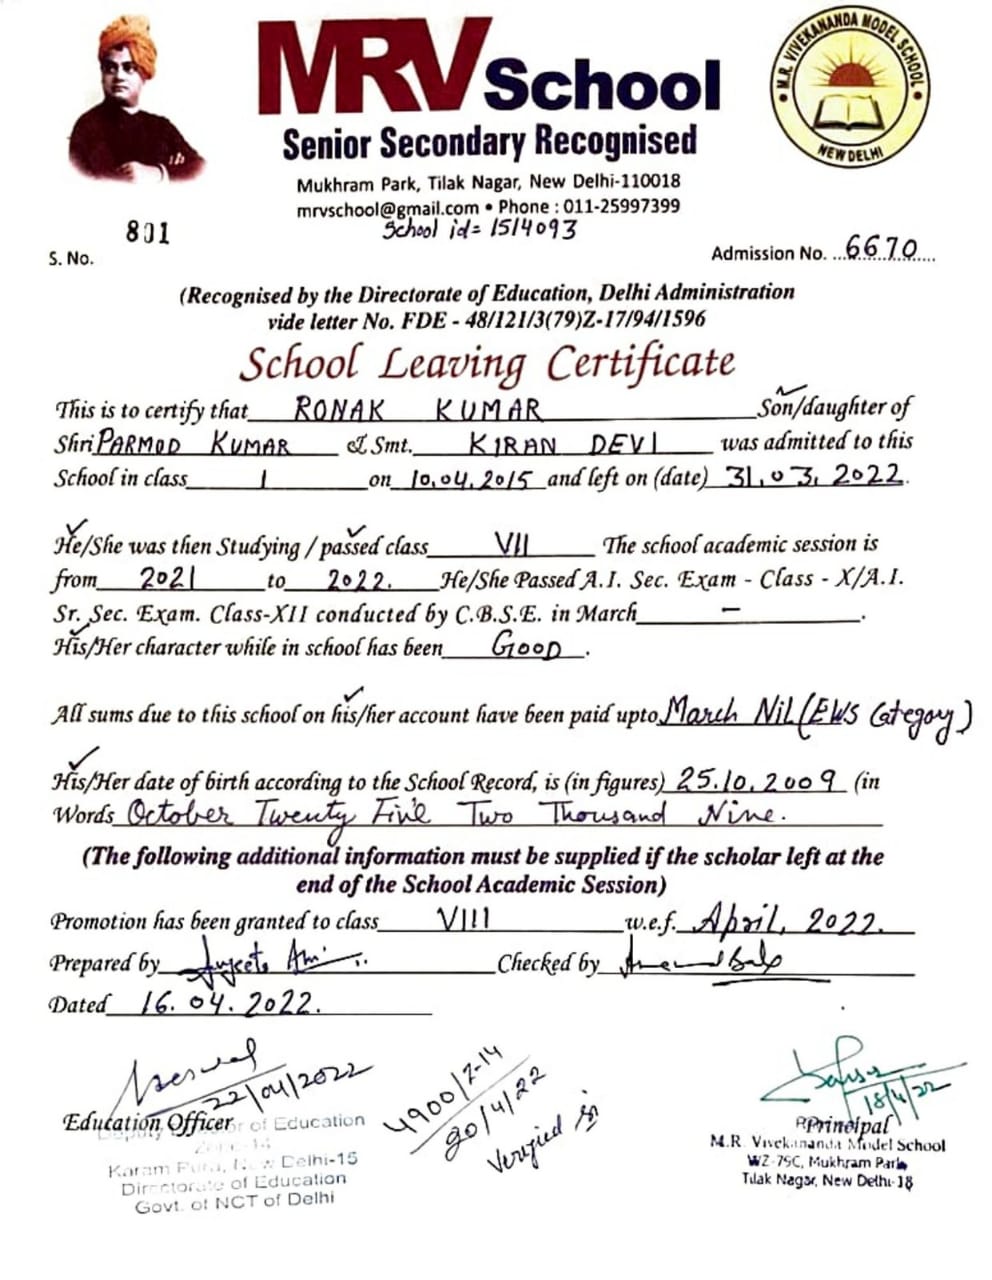 MRV School
M.R. VIVEKANANDA MODEL SCHOOL
NEW DELHI
Senior Secondary Recognised
Mukhram Park, Tilak Nagar, New Delhi-110018
mrvschool@gmail.com • Phone : 011-25997399
School id= 1514093
S. No. 801
Admission No. ...6670....
(Recognised by the Directorate of Education, Delhi Administration
vide letter No. FDE - 48/121/3(79)Z-17/94/1596
School Leaving Certificate
This is to certify that RONAK KUMAR Son/daughter of
Shri PARMOD KUMAR & Smt. KIRAN DEVI was admitted to this
School in class I on 10.04.2015 and left on (date) 31.03.2022.
He/She was then Studying / passed class VII The school academic session is
from 2021 to 2022. He/She Passed A.I. Sec. Exam - Class - X/A.I.
Sr. Sec. Exam. Class-XII conducted by C.B.S.E. in March - .
His/Her character while in school has been GOOD .
All sums due to this school on his/her account have been paid upto March Nil (EWS Category)
His/Her date of birth according to the School Record, is (in figures) 25.10.2009 (in
Words October Twenty Five Two Thousand Nine.
(The following additional information must be supplied if the scholar left at the
end of the School Academic Session)
Promotion has been granted to class VIII w.e.f. April, 2022.
Prepared by
Checked by
Dated 16.04.2022.
22/04/2022
4900/Z-14
20/4/22
Verified
18/4/22
Education Officer
Deputy Director of Education
Zone-14
Karam Pura, New Delhi-15
Directorate of Education
Govt. of NCT of Delhi
Principal
M.R. Vivekananda Model School
WZ-79C, Mukhram Park
Tilak Nagar, New Delhi-18